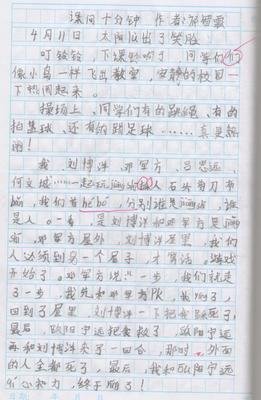 课间十分钟 作者:
4月11日 太阳公公出了笑脸
叮铃铃,下课铃响了,同学们
像小鸟一样飞出教室,安静的校园一
下热闹起来。
操场上,同学们有的跳绳、有的
拍篮球、还有的踢足球……真是热
闹!
我、刘博洋、邓军方、吕思远、
何文斌……一起玩 人石头剪刀布
我们首 ,分别谁是 谁
是人。一看,是刘博洋和邓军方是
邓军方屋外,刘博洋屋里,我们
人必须到另一个屋子,才算活。游戏
开始了。邓军方说:"一步,我们就走
了一步,我先和邓军方PK,我 了,
回到了屋里,刘博洋一下把我 死了,
最后,欧阳宁远把我救了,欧阳宁远
再和刘博洋来了一回合,那时,外面
的人全都死了,最后,我和欧阳宁远
心协力,终于 了!